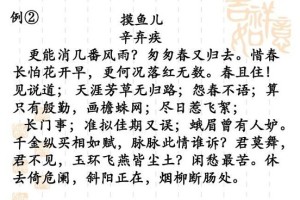 例②
摸鱼儿
辛弃疾
更能消几番风雨?匆匆春又归去。惜春
长怕花开早,更何况落红无数。春且住!
见说道;天涯芳草无归路;怨春不语;算
只有殷勤,画檐蛛网;尽日惹飞絮;
长门事;准拟佳期又误;蛾眉曾有人妒。
千金纵买相如赋,脉脉此情谁诉?君莫舞,
君不见,玉环飞燕皆尘土?闲愁最苦。休
去倚危阑,斜阳正在,烟柳断肠处。